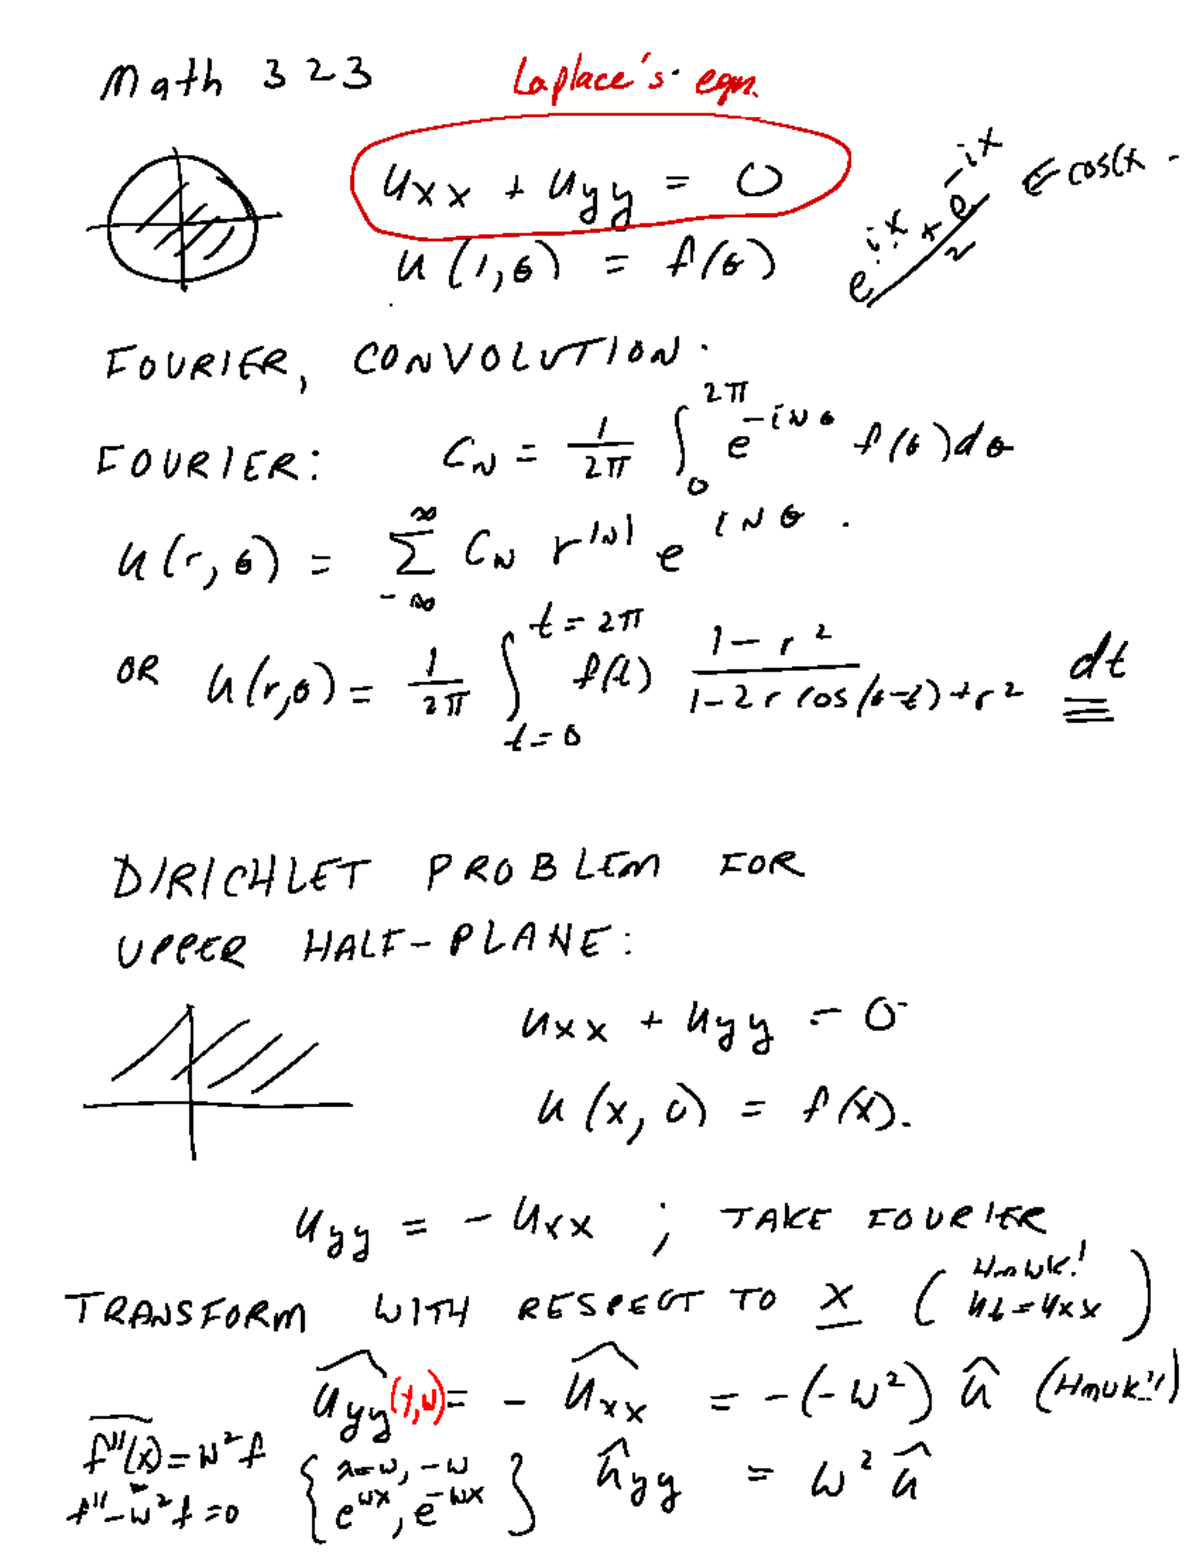 Math 323
Laplace's eqn.
u_xx + u_yy = 0
u(1,θ) = f(θ)
(e^{ix} + e^{-ix})/2 ⇐ cos(x -
FOURIER, CONVOLUTION.
FOURIER: C_N = 1/2π ∫_0^{2π} e^{-iNθ} f(θ)dθ
u(r,θ) = Σ_{-∞}^{∞} C_N r^{|N|} e^{iNθ}.
OR u(r,θ) = 1/2π ∫_{t=0}^{t=2π} f(t) (1-r²)/(1-2r cos(θ-t)+r²) dt
DIRICHLET PROBLEM FOR
UPPER HALF-PLANE:
u_xx + u_yy = 0
u(x,0) = f(x).
u_yy = -u_xx ; TAKE FOURIER
TRANSFORM WITH RESPECT TO x (Hmwk! u_t = u_xx)
\widehat{u_yy}(y,w) = -\widehat{u_xx} = -(-w²) û (Hmwk!!)
f''(x) = w² f
f'' - w² f = 0
{λ=w, -w
e^{wx}, e^{-wx}}
û_yy = w² û